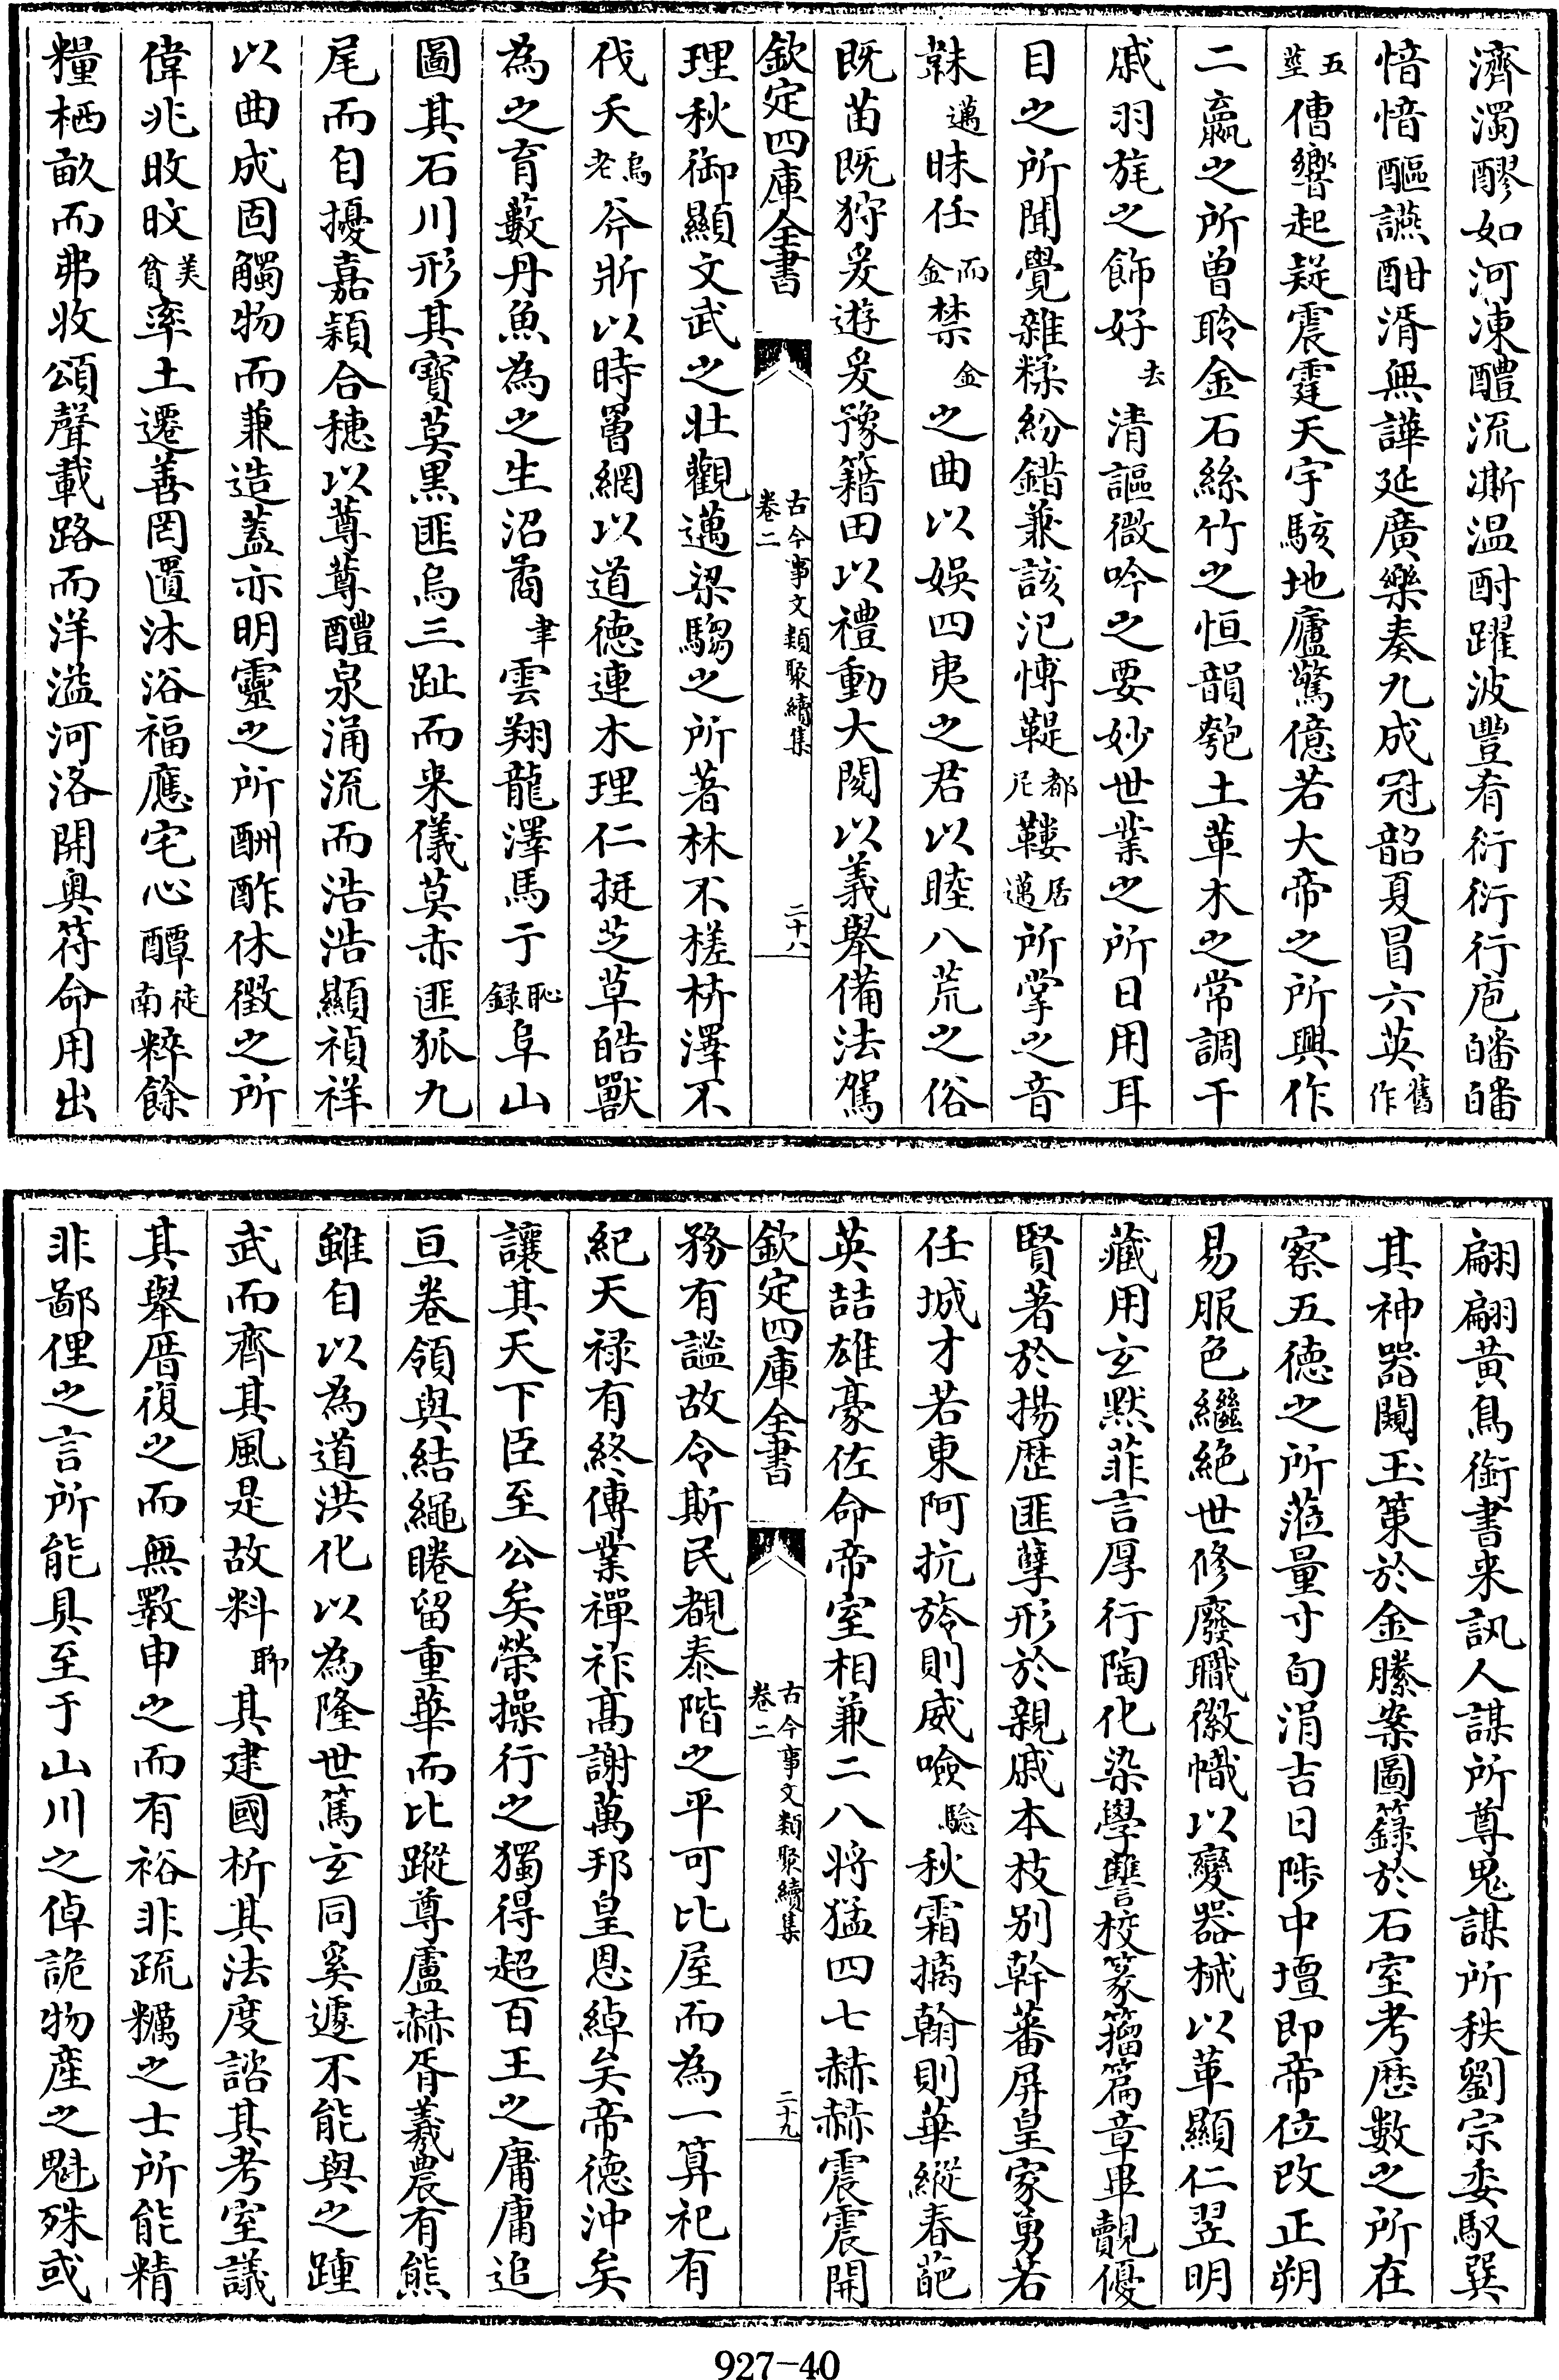 濟濁醪如河凍醴流澌温酎躍波豐肴衍衍行庖皤皤
愔愔醧讌酣湑無譁延廣樂奏九成冠韶夏冒六英舊作
五莖傮響起疑震霆天宇駭地廬驚億若大帝之所興作
二嬴之所曽聆金石絲竹之恒韻匏土革木之常調干
戚羽旄之飾好去清謳微吟之要妙世業之所日用耳
目之所聞覺雜糅紛錯兼該汜愽鞮都尼鞻居邁所掌之音
韎邁昧任金而金禁金之曲以娛四夷之君以睦八荒之俗
既苗既狩爰遊爰豫籍田以禮動大閱以義舉備法駕
欽定四庫全書
古今事文類聚續集
卷二
二十八
理秋御顯文武之壯觀邁梁騶之所著林不槎枿澤不
伐夭烏老斧斨以時罾網以道德連木理仁挺芝草皓獸
為之育藪丹魚為之生沼矞聿雲翔龍澤馬亍恥録阜山
圖其石川形其寶莫黒匪烏三趾而来儀莫赤匪狐九
尾而自擾嘉穎合穗以蓴蓴醴泉涌流而浩浩顯禎祥
以曲成固觸物而兼造蓋亦明靈之所酬酢休徵之所
偉兆旼旼美貧率土遷善罔匱沐浴福應宅心醰徒南粹餘
糧栖畝而弗收頌聲載路而洋溢河洛開奥符命用出
翩翩黄鳥銜書来訊人謀所尊鬼謀所秩劉宗委馭巽
其神器闚玉策於金縢案圖籙於石室考歴數之所在
察五徳之所蒞量寸旬涓吉日陟中壇即帝位改正朔
易服色繼絶世修廢職徽幟以變器械以革顯仁翌明
藏用玄默菲言厚行陶化染學讐校篆籀篇章畢覿優
賢著於揚歴匪孽形於親戚本枝别幹蕃屏皇家勇若
任城才若東阿抗旍則威噞驗秋霜摛翰則華縱春葩
英喆雄豪佐命帝室相兼二八将猛四七赫赫震震開
欽定四庫全書
古今事文類聚續集
卷二
二十九
務有謐故令斯民覩泰階之平可比屋而為一算祀有
紀天禄有終傳業禪祚髙謝萬邦皇恩綽矣帝徳沖矣
讓其天下臣至公矣榮操行之獨得超百王之庸庸追
亘巻領與結繩睠留重華而比蹤尊盧赫胥羲農有熊
雖自以為道洪化以為隆世篤玄同奚遽不能與之踵
武而齊其風是故料聊其建國析其法度諮其考室議
其舉厝復之而無斁申之而有裕非疏糲之士所能精
非鄙俚之言所能具至于山川之倬詭物産之魁殊或
927-40